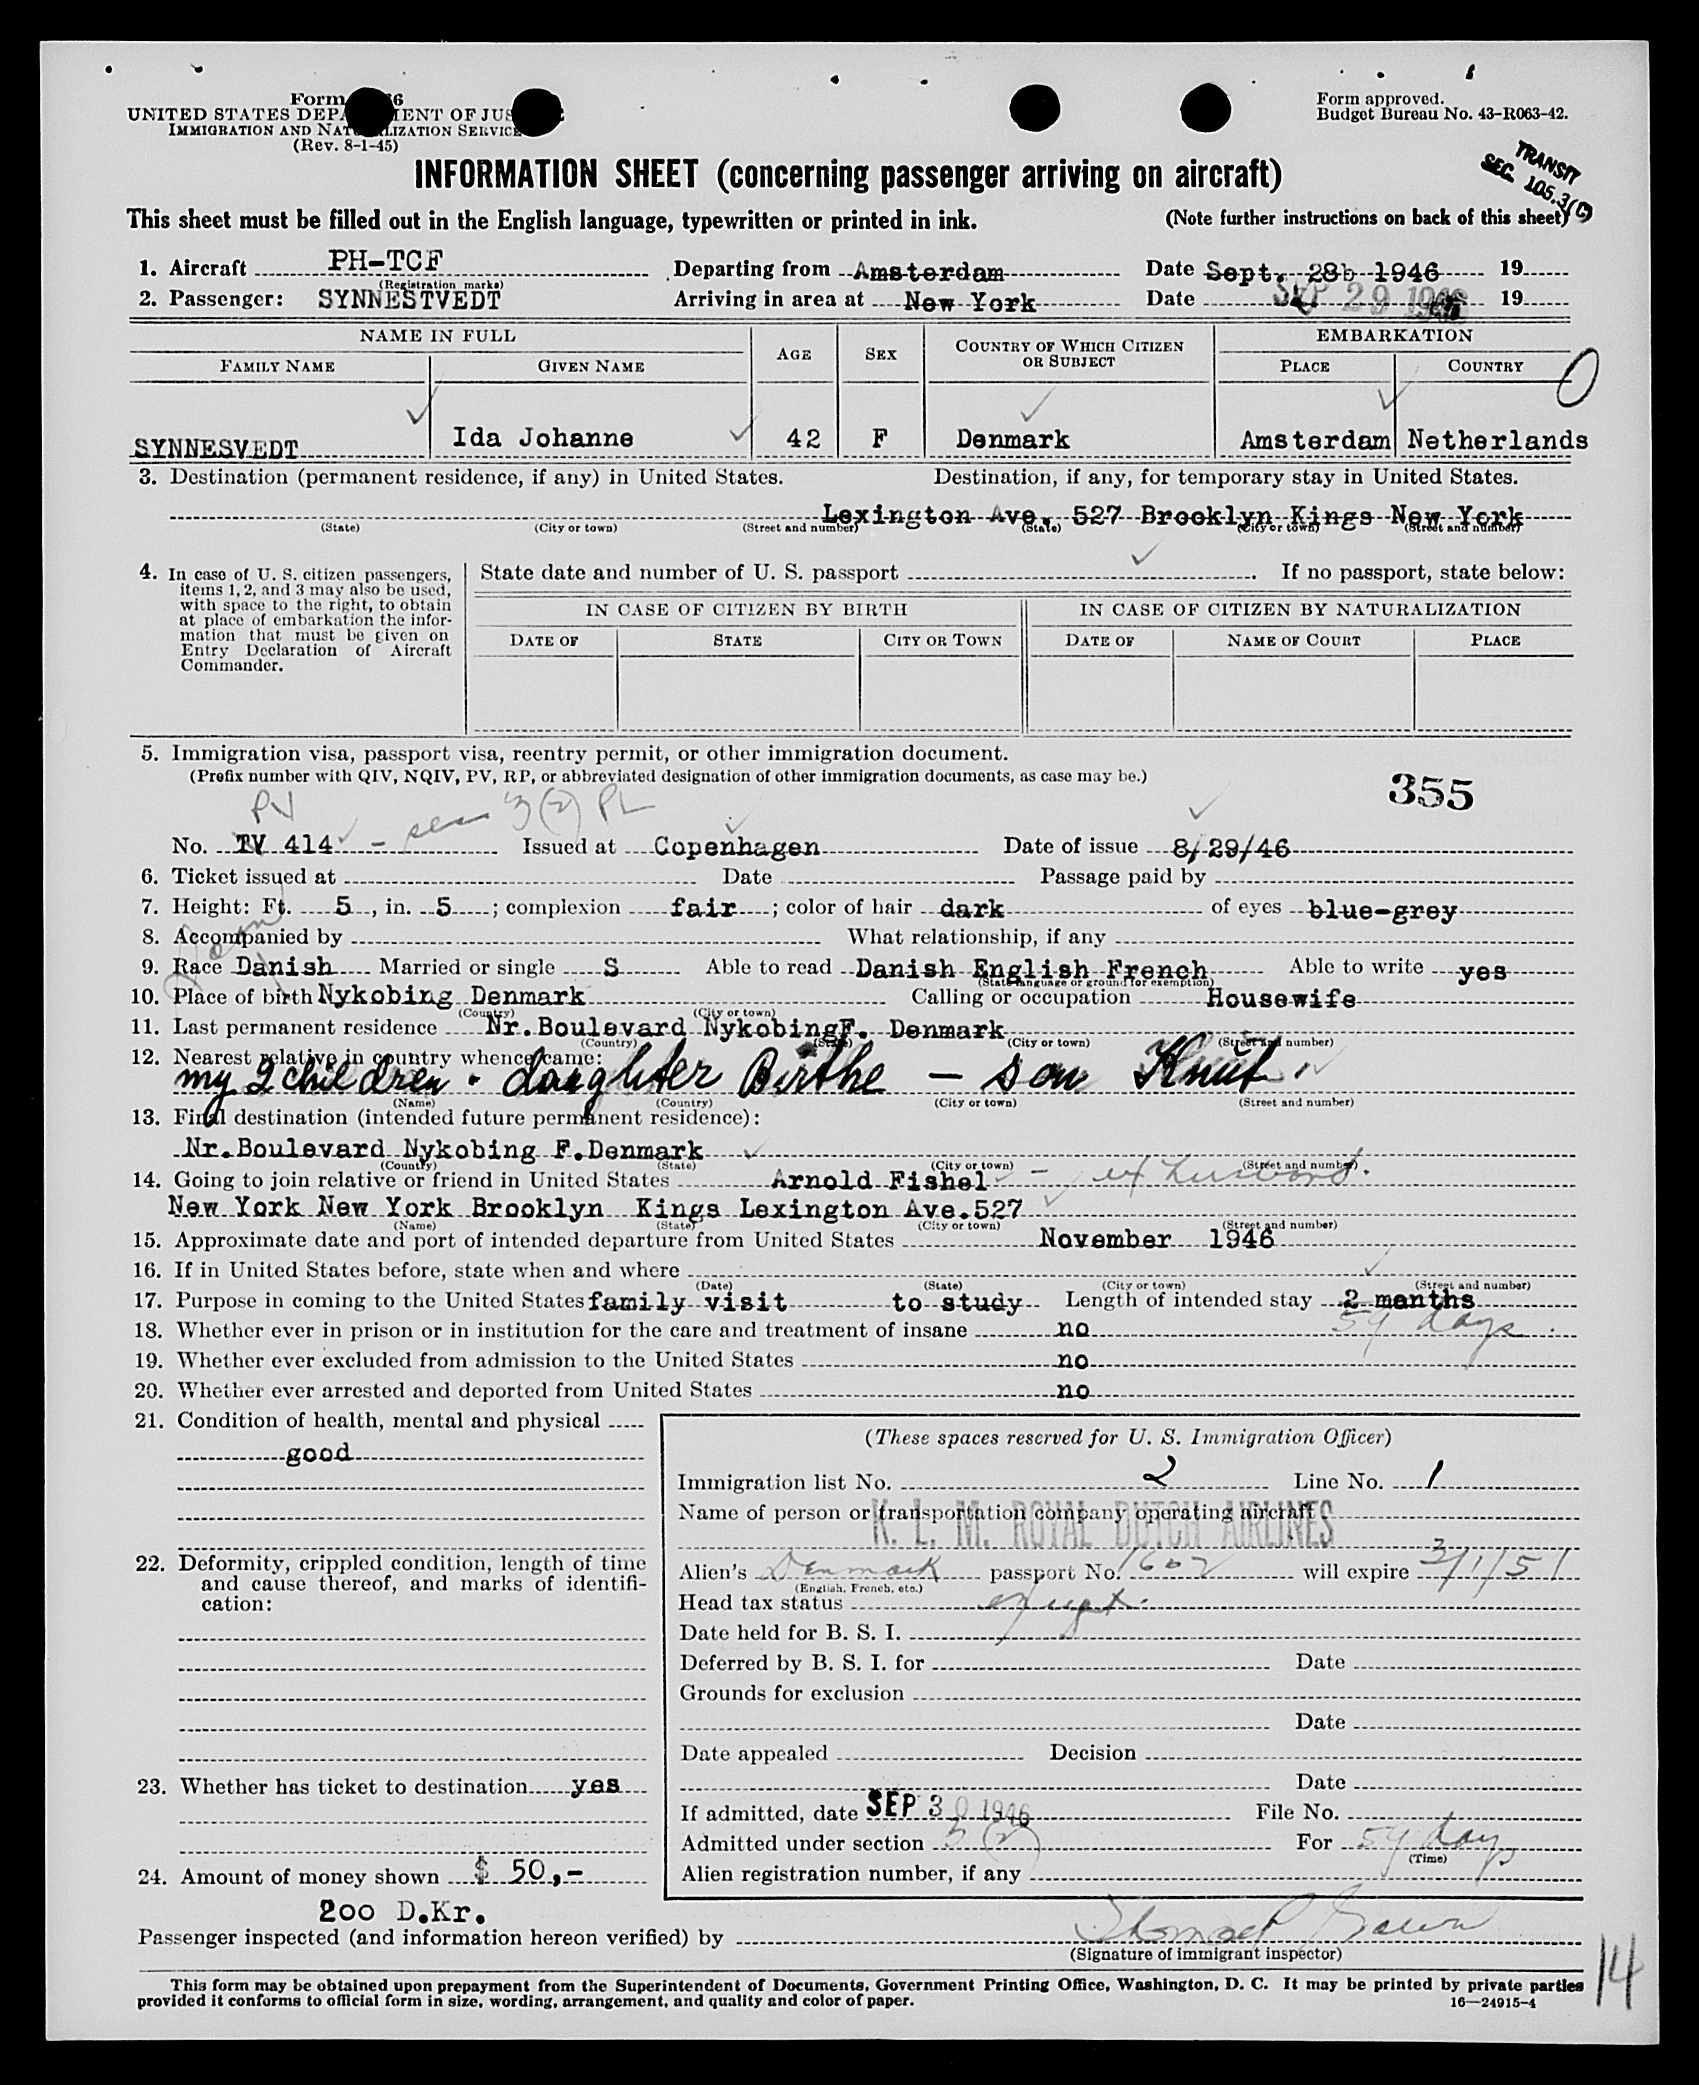 Form
UNITED STATES DEPARTMENT OF JUSTICE
IMMIGRATION AND NATURALIZATION SERVICE
(Rev. 8-1-45)
Form approved.
Budget Bureau No. 43-R063-42.
TRANSIT
SEC. 105.3(C)
INFORMATION SHEET (concerning passenger arriving on aircraft)
This sheet must be filled out in the English language, typewritten or printed in ink. (Note further instructions on back of this sheet)
1. Aircraft PH-TCF Departing from Amsterdam Date Sept. 28 1946 19
(Registration marks)
2. Passenger: SYNNESTVEDT Arriving in area at New York Date SEP 29 1946 19
NAME IN FULL AGE SEX COUNTRY OF WHICH CITIZEN OR SUBJECT EMBARKATION
FAMILY NAME GIVEN NAME PLACE COUNTRY
SYNNESVEDT Ida Johanne 42 F Denmark Amsterdam Netherlands
3. Destination (permanent residence, if any) in United States. Destination, if any, for temporary stay in United States.
Lexington Ave. 527 Brooklyn Kings New York
(State) (City or town) (Street and number) (State) (City or town) (Street and number)
4. In case of U. S. citizen passengers, items 1, 2, and 3 may also be used, with space to the right, to obtain at place of embarkation the information that must be given on Entry Declaration of Aircraft Commander.
State date and number of U. S. passport . If no passport, state below:
IN CASE OF CITIZEN BY BIRTH IN CASE OF CITIZEN BY NATURALIZATION
DATE OF STATE CITY OR TOWN DATE OF NAME OF COURT PLACE
5. Immigration visa, passport visa, reentry permit, or other immigration document.
(Prefix number with QIV, NQIV, PV, RP, or abbreviated designation of other immigration documents, as case may be.)
355
PV 3(2) PL
No. TV 414 Issued at Copenhagen Date of issue 8/29/46
6. Ticket issued at Date Passage paid by
7. Height: Ft. 5, in. 5; complexion fair; color of hair dark of eyes blue-grey
8. Accompanied by What relationship, if any
9. Race Danish Married or single S Able to read Danish English French Able to write yes
(State language or ground for exemption)
10. Place of birth Nykobing Denmark Calling or occupation Housewife
(Country) (City or town)
11. Last permanent residence Nr.Boulevard NykobingF. Denmark
(Country) (State) (City or town) (Street and number)
12. Nearest relative in country whence came:
my 2 children - daughter Birthe - son Knut
(Name) (Country) (City or town) (Street and number)
13. Final destination (intended future permanent residence):
Nr.Boulevard Nykobing F.Denmark
(Country) (State) (City or town) (Street and number)
14. Going to join relative or friend in United States Arnold Fishel - ex husband.
New York New York Brooklyn Kings Lexington Ave.527
(Name) (State) (City or town) (Street and number)
15. Approximate date and port of intended departure from United States November 1946
16. If in United States before, state when and where
(Date) (State) (City or town) (Street and number)
17. Purpose in coming to the United States family visit to study Length of intended stay 2 months
59 days
18. Whether ever in prison or in institution for the care and treatment of insane no
19. Whether ever excluded from admission to the United States no
20. Whether ever arrested and deported from United States no
21. Condition of health, mental and physical
good
22. Deformity, crippled condition, length of time and cause thereof, and marks of identification:
23. Whether has ticket to destination yes
24. Amount of money shown $ 50,-
200 D.Kr.
(These spaces reserved for U. S. Immigration Officer)
Immigration list No. 2 Line No. 1
Name of person or transportation company operating aircraft
K. L. M. ROYAL DUTCH AIRLINES
Alien's Denmark passport No. 1602 will expire 3/1/51
(English, French, etc.)
Head tax status exempt.
Date held for B. S. I.
Deferred by B. S. I. for Date
Grounds for exclusion
Date
Date appealed Decision
Date
If admitted, date SEP 30 1946 File No.
Admitted under section 3 (2) For 59 days
(Time)
Alien registration number, if any
Passenger inspected (and information hereon verified) by
(Signature of immigrant inspector)
14
This form may be obtained upon prepayment from the Superintendent of Documents, Government Printing Office, Washington, D. C. It may be printed by private parties
provided it conforms to official form in size, wording, arrangement, and quality and color of paper. 16—24915-4